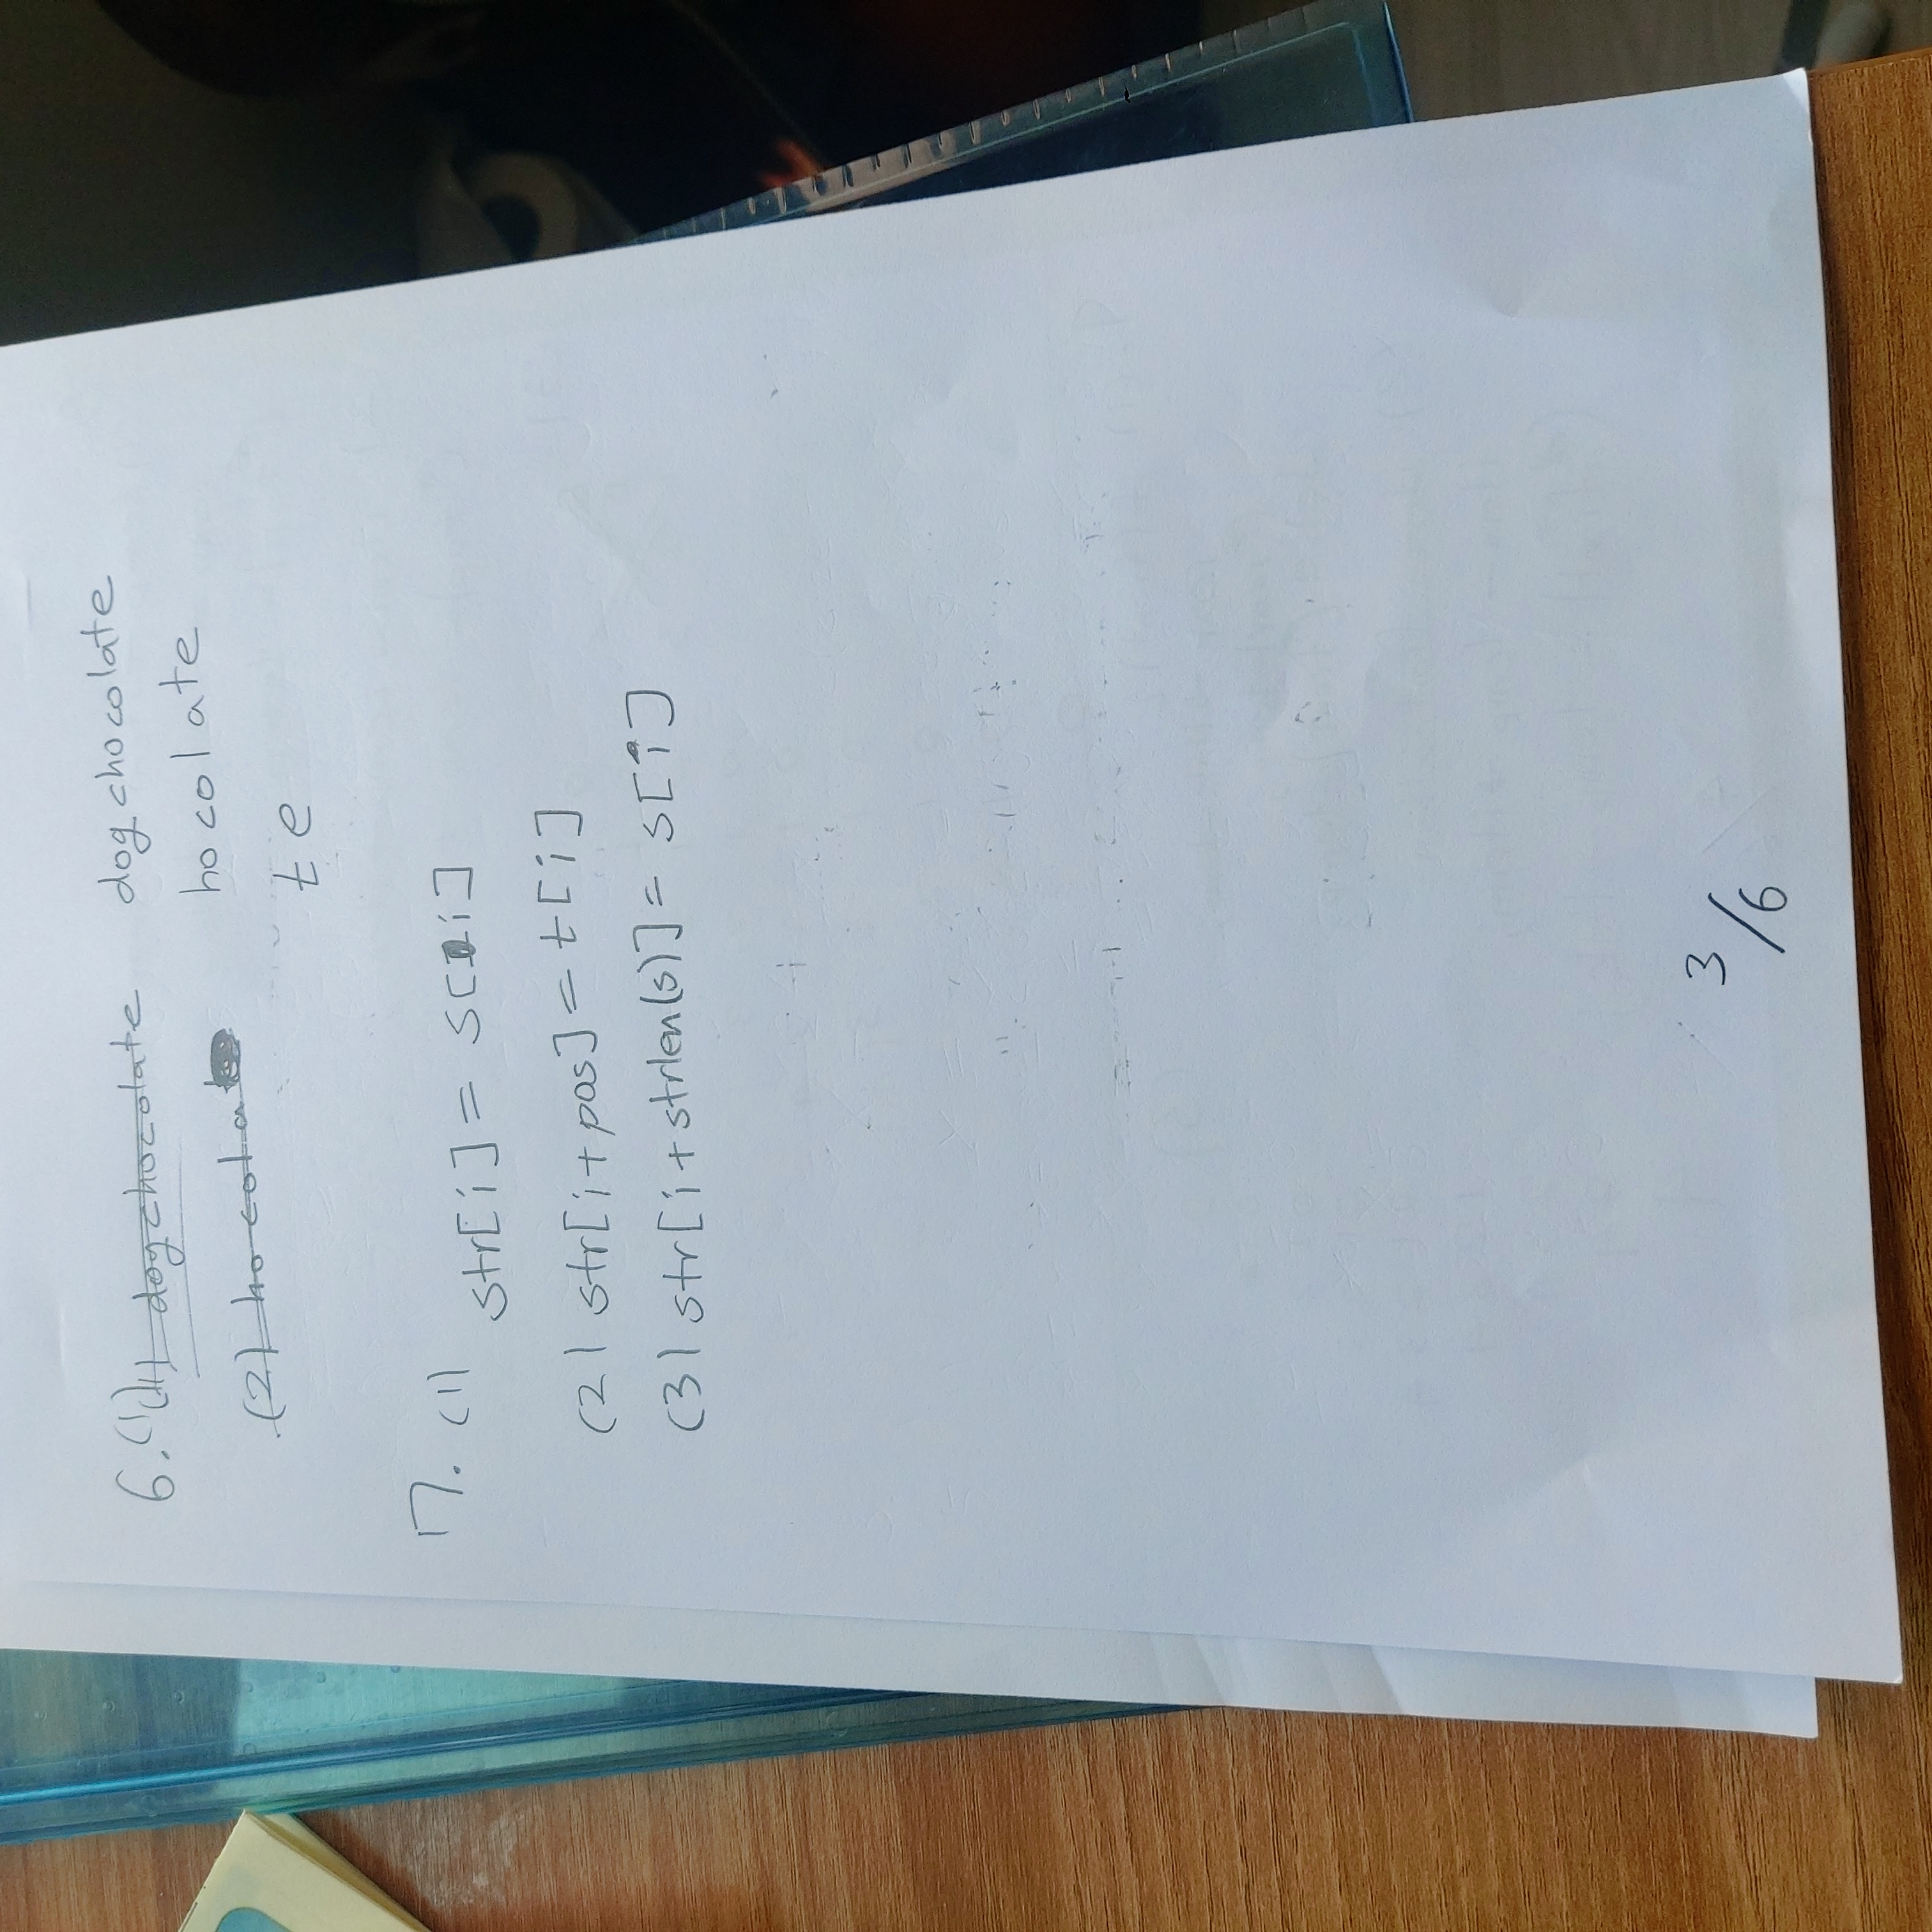 6. (1) (1) dogchocolate dogchocolate
(2) hocolate hocolate
te
7. (1) str[i] = s[i]
(2) str[i+pos] = t[i]
(3) str[i+strlen(s)] = s[i]
3/6